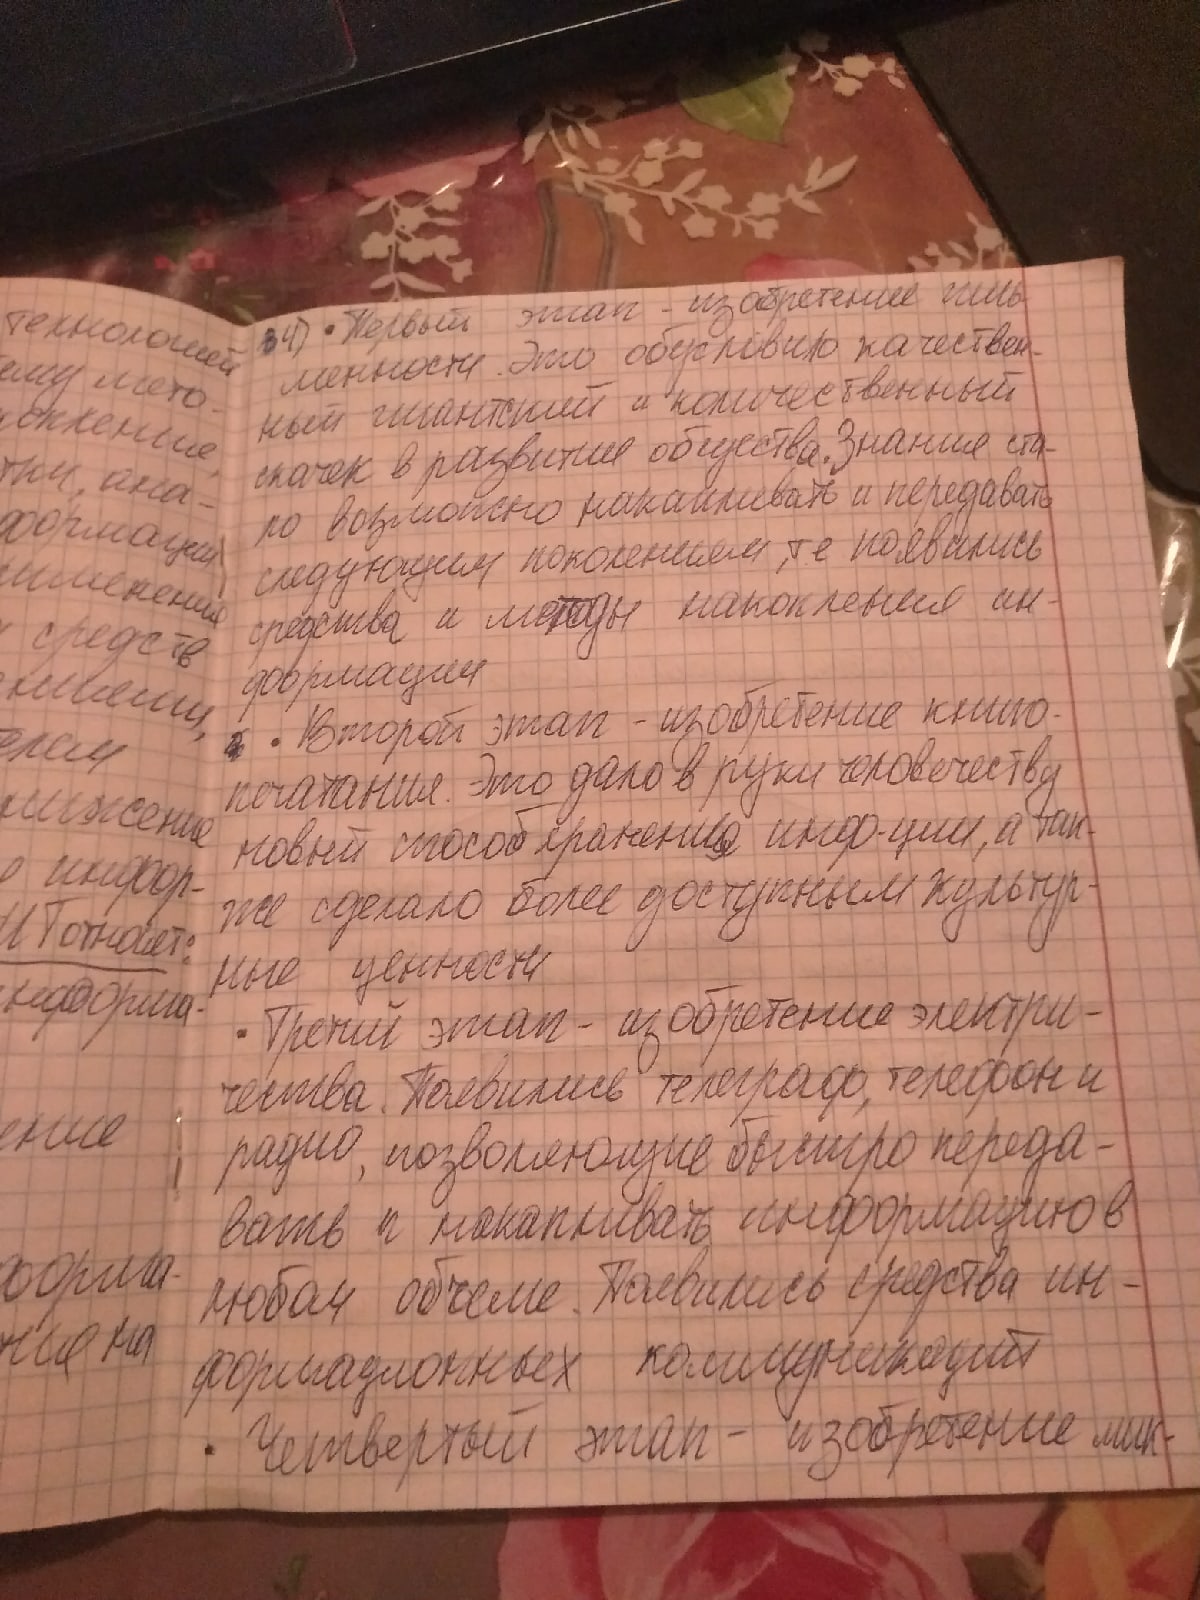 технологией
ему мето-
копление,
тки, ана-
формации
именения
х средств
елем
снижение
о инфор-
ИТ относят:
информа-
ение
форма-
ние на
34) • Первый этап - изобретение пись
менности. Это обусловило качествен-
ный гигантский и количественный
скачек в развитие общества. Знания ста-
ло возможно накапливать и передавать
следующим поколениям, т.е появились
средства и методы накопления ин-
формации
• Второй этап - изобретение книго-
печатания. Это дало в руки человечеству
новый способ хранения инф-ции, а так-
же сделало более доступным культур-
ные ценности
• Третий этап - изобретение электри-
чества. Появились телеграф, телефон и
радио, позволяющие быстро переда-
вать и накапливать информацию в
любом объеме. Появились средства ин-
формационных коммуникаций
• Четвертый этап - изобретение мик-